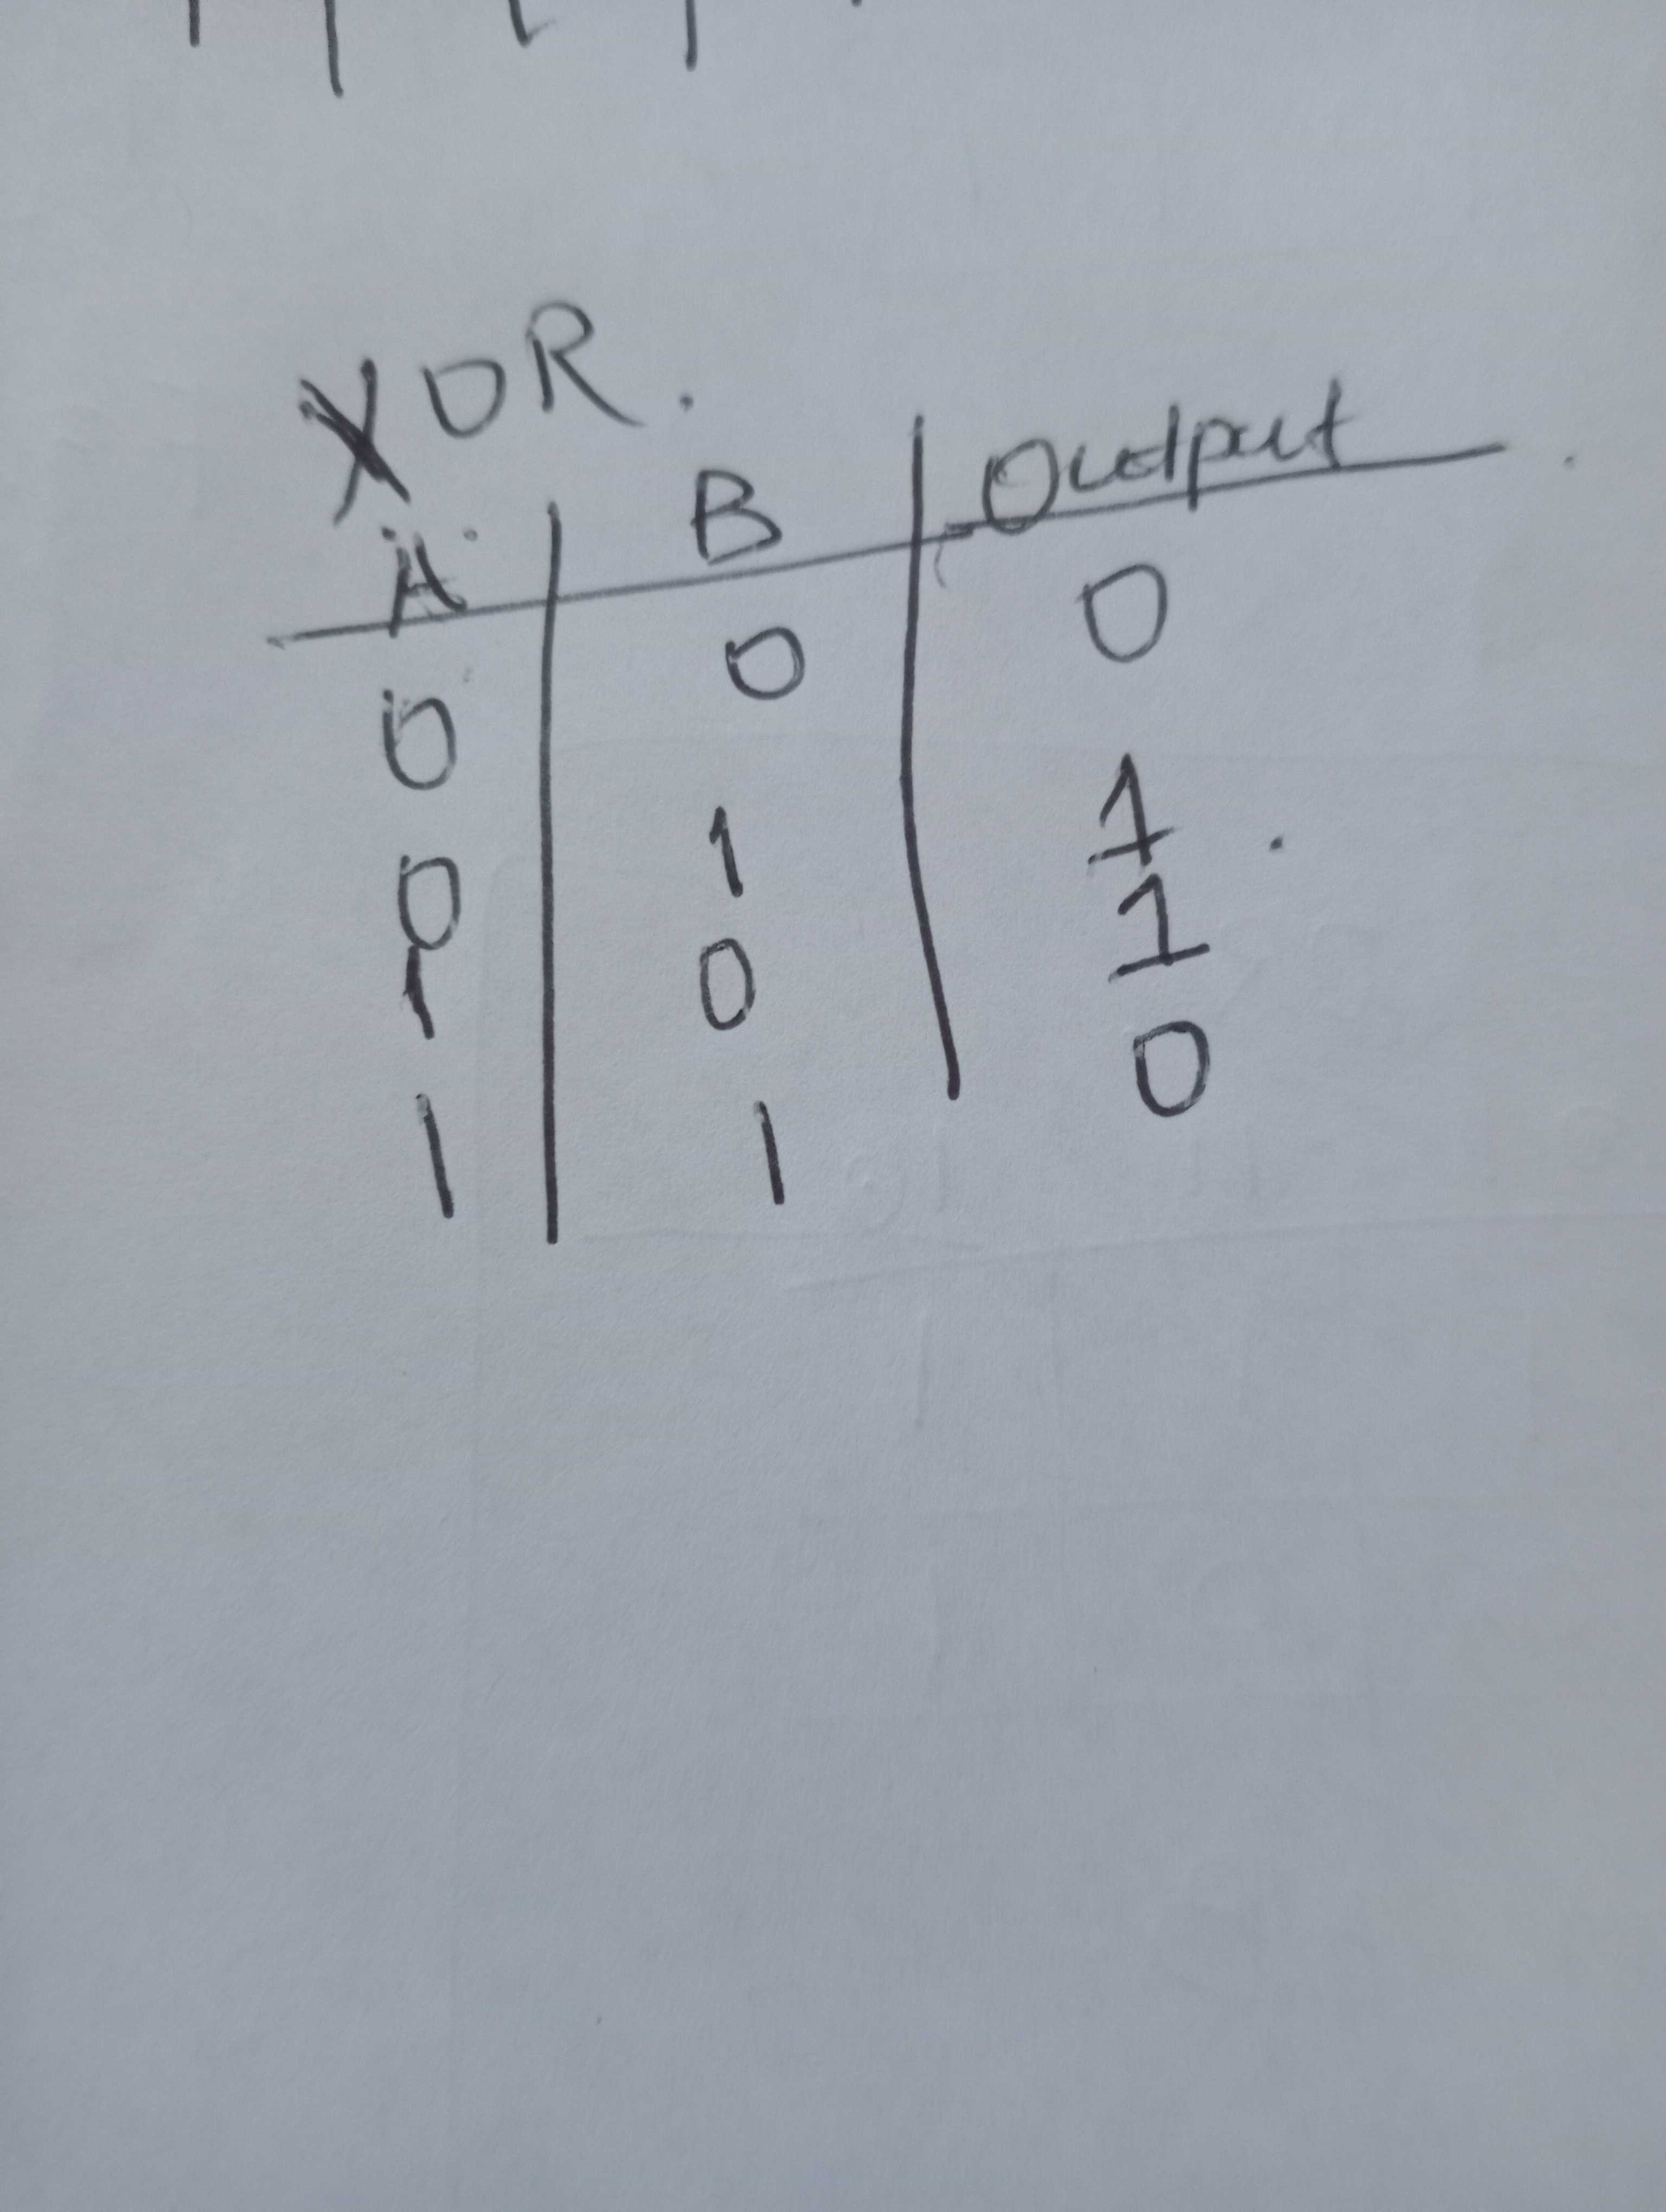 XOR.
A B Output
0 0 0
0 1 1
1 0 1
1 1 0